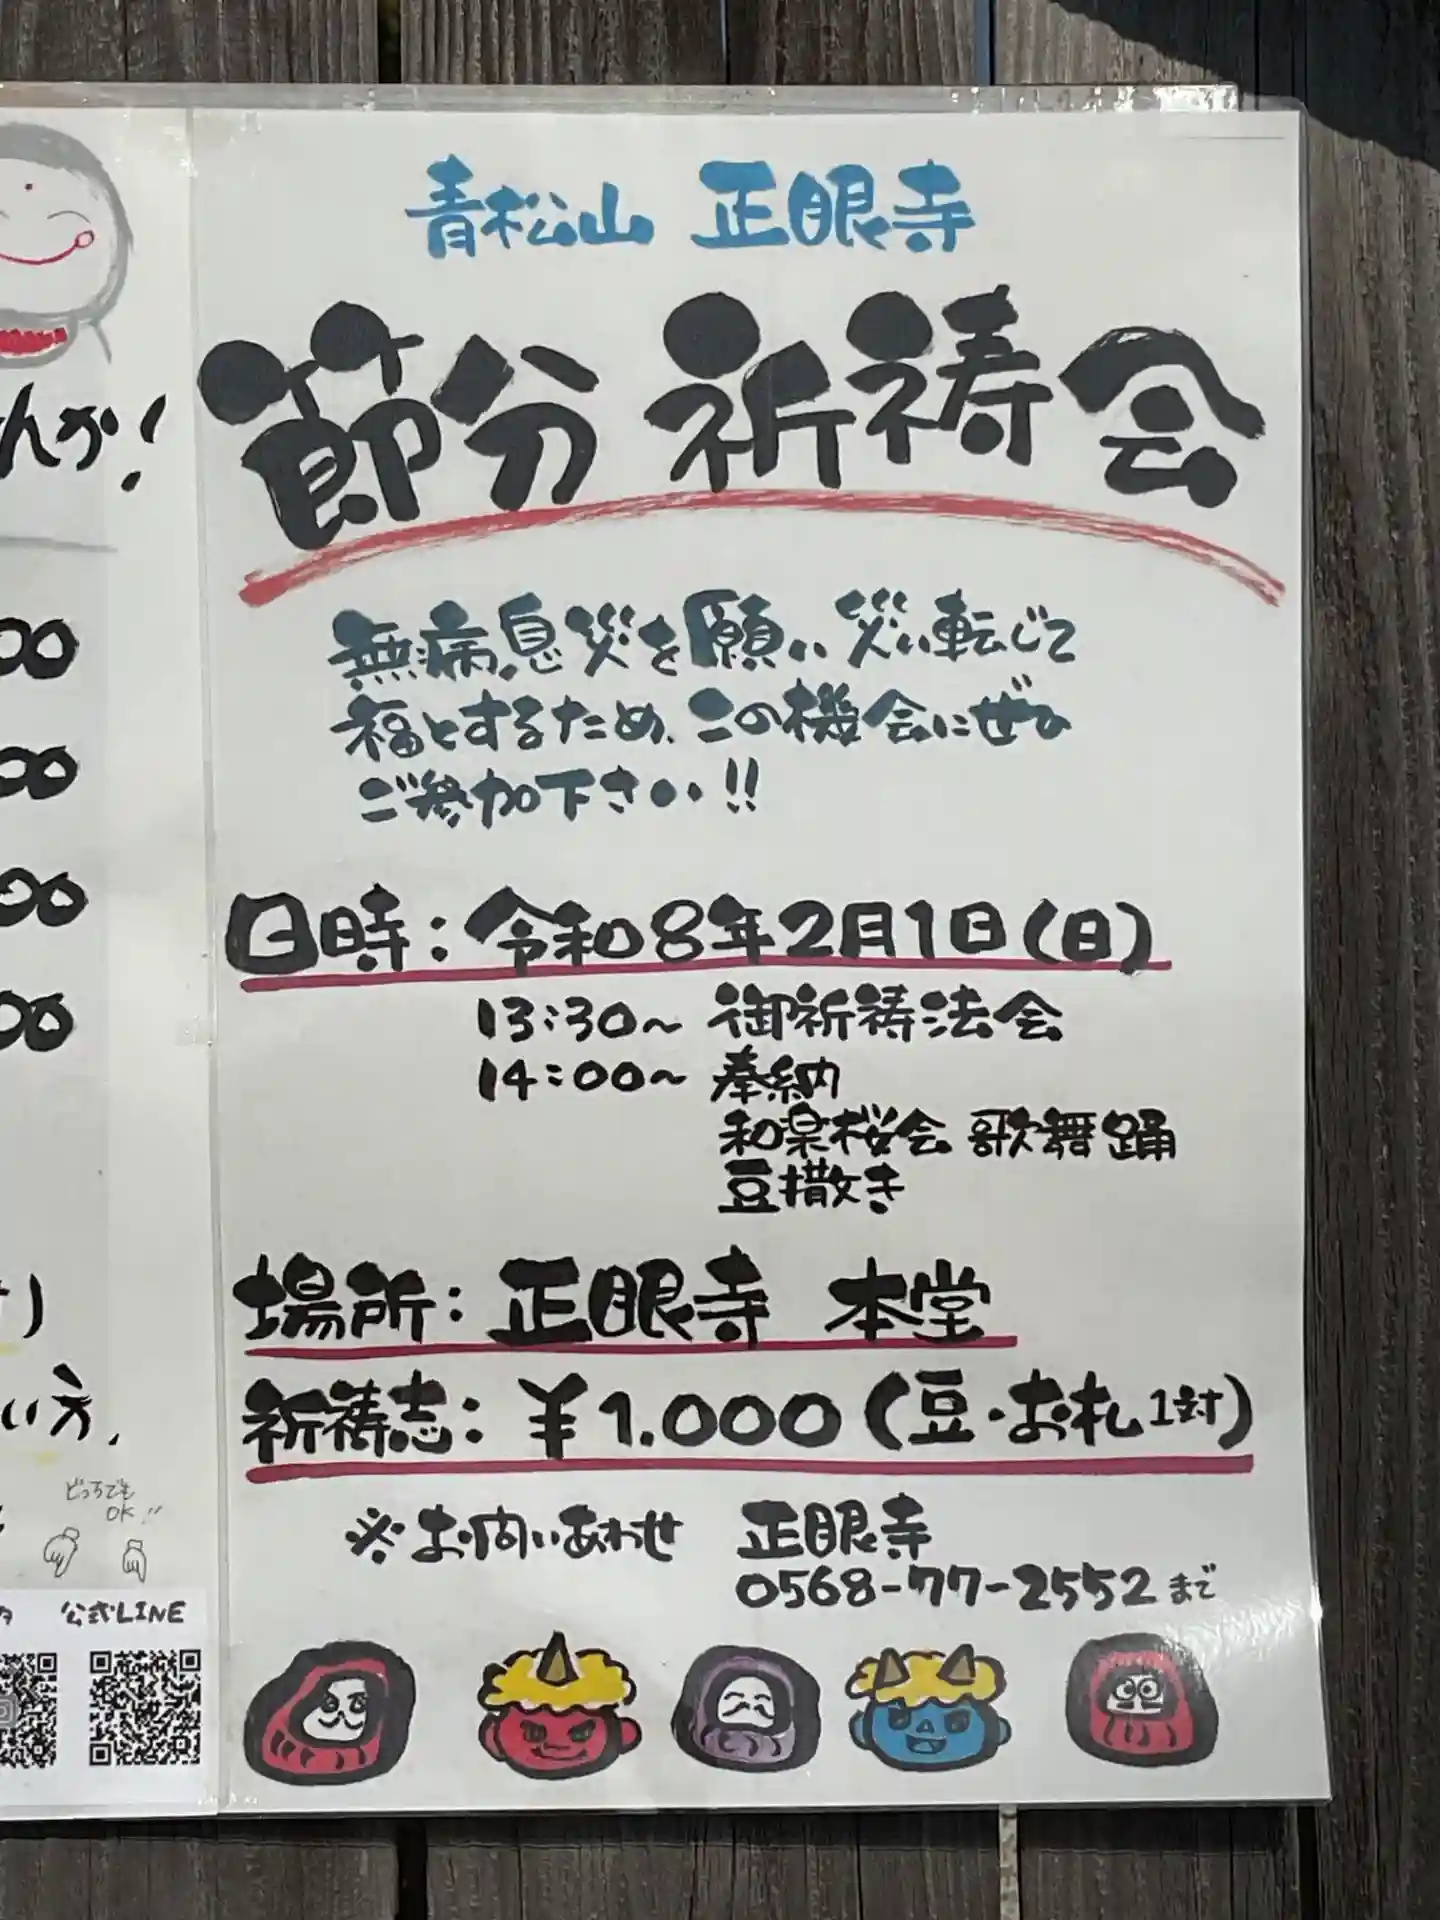 青松山 正眼寺
節分 祈祷会
無病息災を願い、災い転じて
福とするため、この機会にぜひ
ご参加下さい!!
日時:令和8年2月1日(日)
13:30~ 御祈祷法会
14:00~ 奉納
和楽桜会 歌舞踊
豆撒き
場所:正眼寺 本堂
祈祷志:¥1.000(豆・お札1対)
※お問いあわせ 正眼寺
0568-77-2552まで
んか!
00
00
00
00
い方、
どっちでも
OK!!
公式LINE